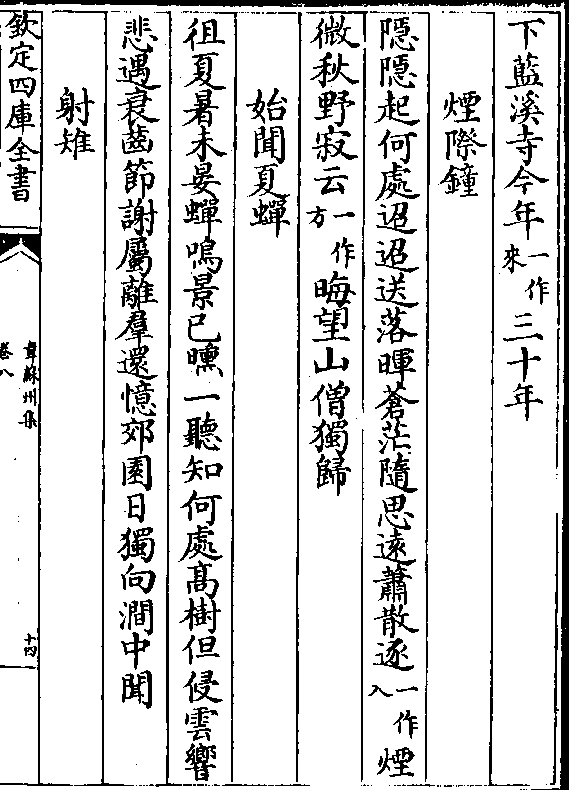 下藍溪寺今年一作來三十年
煙際鐘
隠隠起何處迢迢送落暉蒼茫隨思遠蕭散逐一作入煙
微秋野寂云一作方晦望山僧獨歸
始聞夏蟬
徂夏暑未晏蟬鳴景已曛一聽知何處髙樹但侵雲響
悲遇衰齒節謝屬離羣還憶郊園日獨向澗中聞
射雉
欽定四庫全書
韋蘇州集
卷八
十四